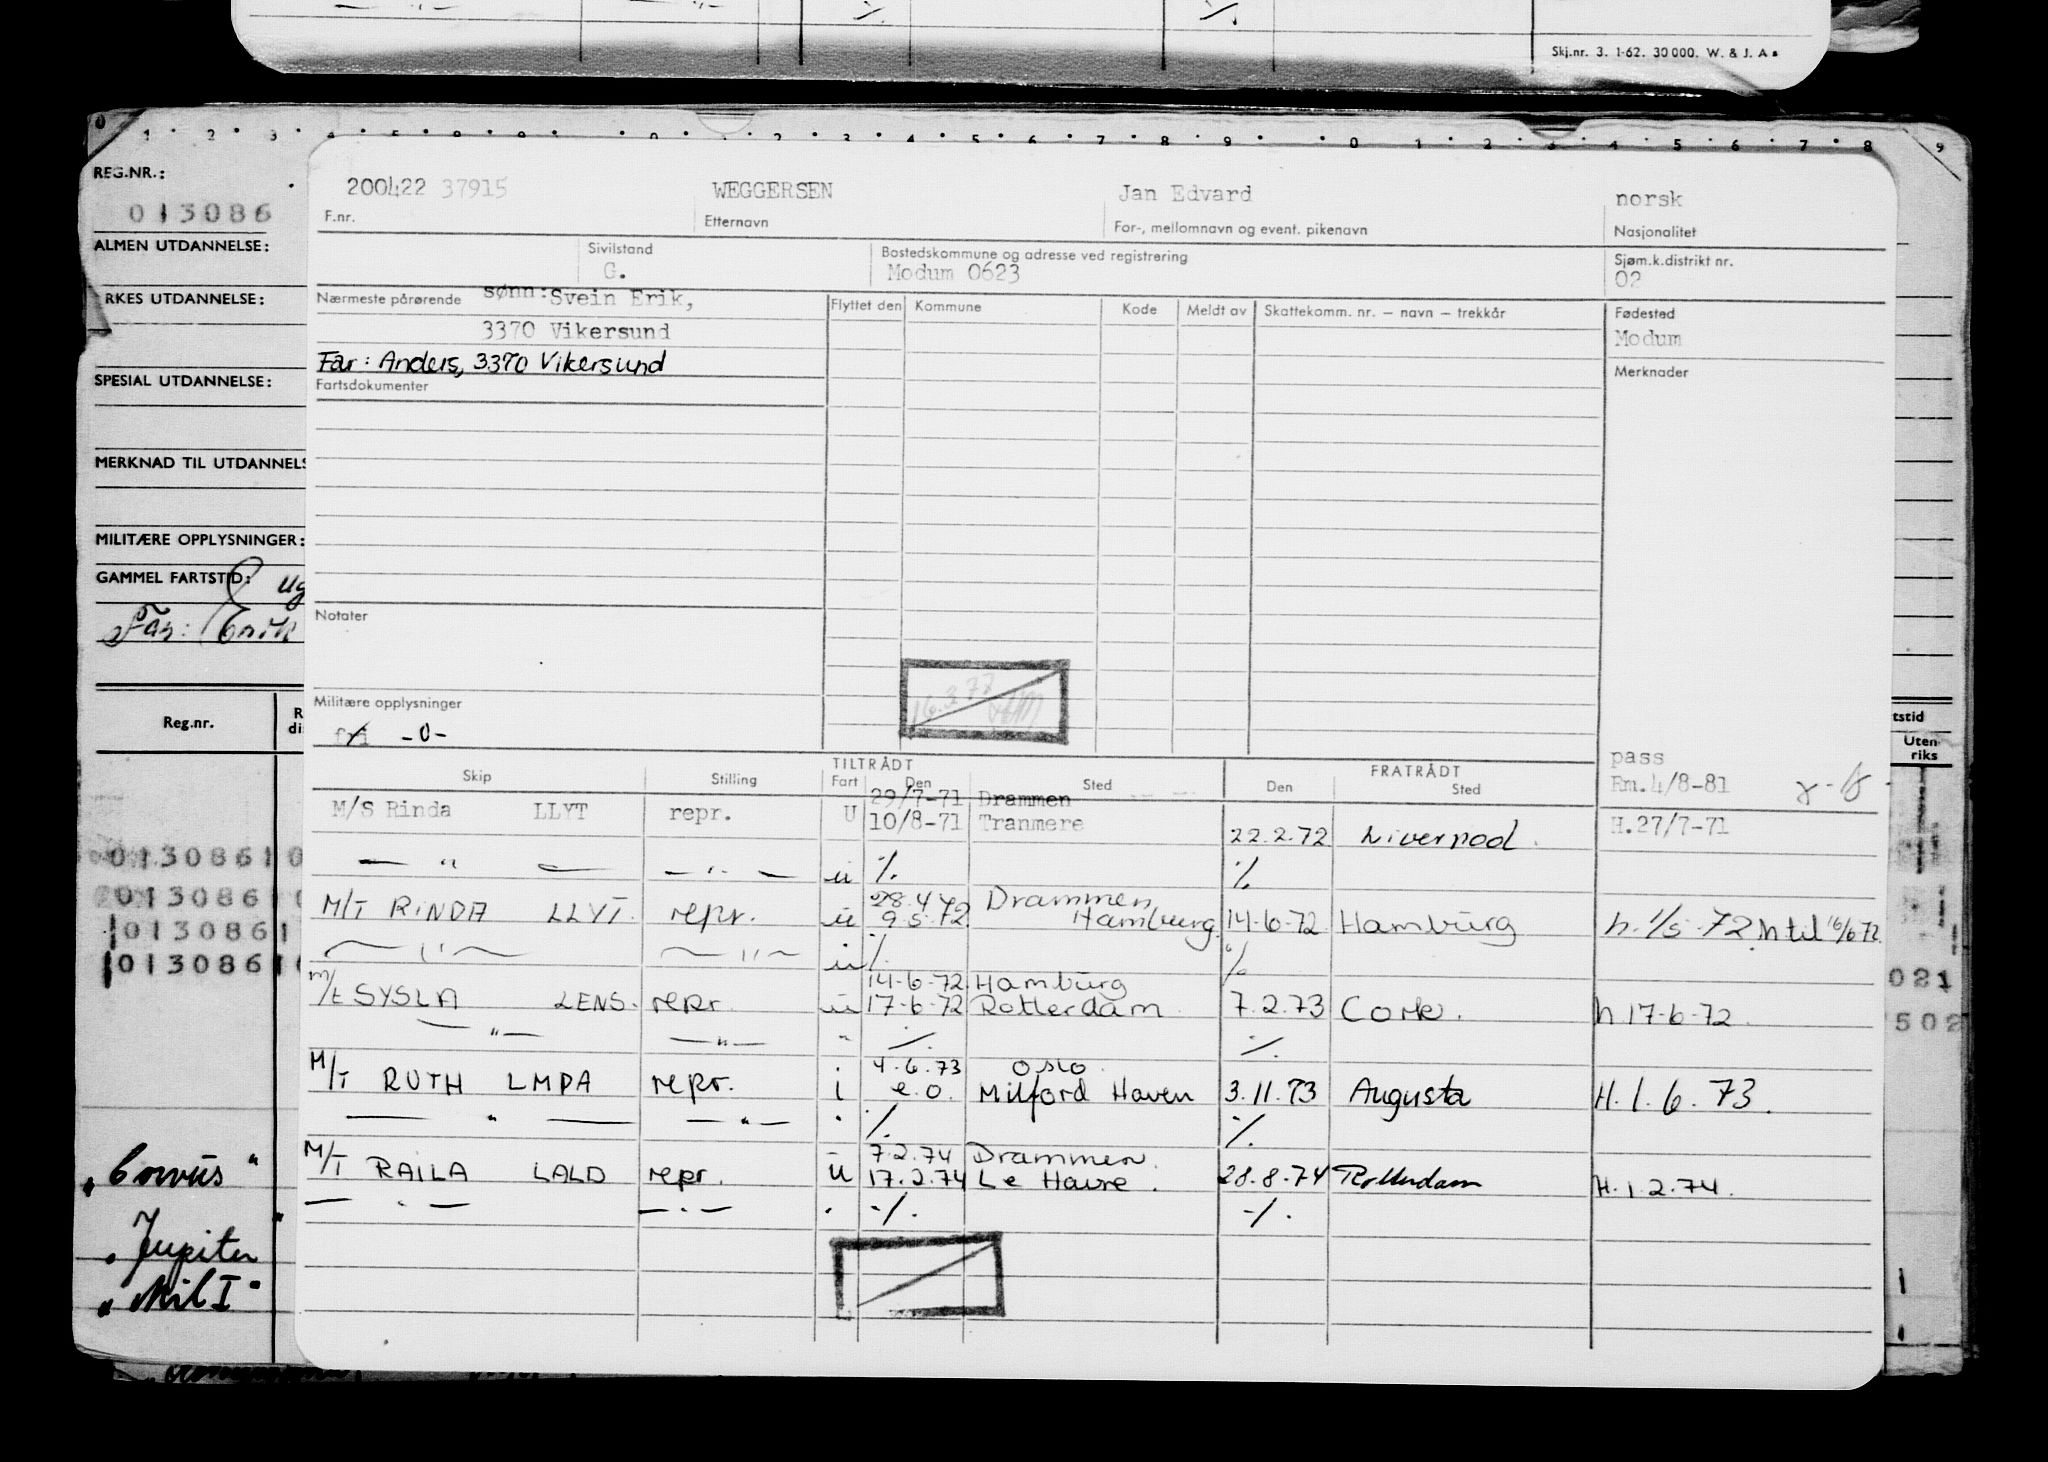 Skj.nr. 3. 1-62. 30 000. W. & J. A.
REG.NR.:
013086
ALMEN UTDANNELSE:
RKES UTDANNELSE:
SPESIAL UTDANNELSE:
MERKNAD TIL UTDANNELS
MILITÆRE OPPLYSNINGER:
GAMMEL FARTSTID:
Far: Erik
Reg.nr.
0130861 0
0130861
0130861
0130861
"Corvus"
"Jupiter"
"Nil I"
200422 37915 WEGGERSEN Jan Edvard norsk
F.nr. Etternavn For-, mellomnavn og event. pikenavn Nasjonalitet
Sivilstand Bostedskommune og adresse ved registrering Sjøm.k.distrikt nr.
G. Modum 0623 02
Nærmeste pårørende sønn: Svein Erik, Flyttet den Kommune Kode Meldt av Skattekomm. nr. — navn — trekkår Fødested
3370 Vikersund Modum
Far: Anders, 3370 Vikersund Merknader
Fartsdokumenter
Notater
Militære opplysninger
fri -0-
TILTRÅDT FRATRÅDT pass
Skip Stilling Fart Den Sted Den Sted Rm. 4/8-81
29/7-71 Drammen
M/S Rinda LLYT repr. U 10/8-71 Tranmere 22.2.72 Liverpool. H.27/7-71
— " — — " — u ٪ ٪
28.4.72 Drammen
M/T RINDA LLYT. repr. u 9.5.72 Hamburg. 14-6-72 Hamburg h. 1/5-72 h til 16/6 72.
— " — — " — u ٪ ٪
14-6-72 Hamburg
M/t SYSLA LENS. repr. u 17-6-72 Rotterdam 7.2.73 Cork. h 17-6-72.
— " — — " — " ٪ ٪
4.6.73 Oslo
M/T RUTH LMPA repr. i e.o. Milford Haven 3.11.73 Augusta H.1.6.73.
— " — — " — " ٪ ٪
7.2.74 Drammen.
M/T RAILA LALD repr. u 17.2.74 Le Havre. 28.8.74 Rotterdam H.1.2.74.
— " — — " — " ٪ ٪
tstid
Uten-
riks
021
502